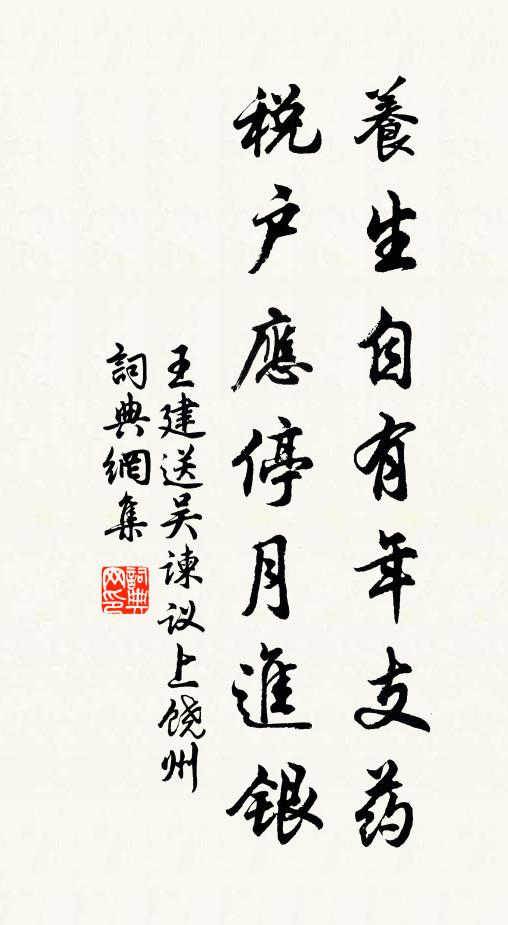 養生自有年支药
税户應停月進銀
王建送吴谏议上饶州
詞典網集
詞典網印